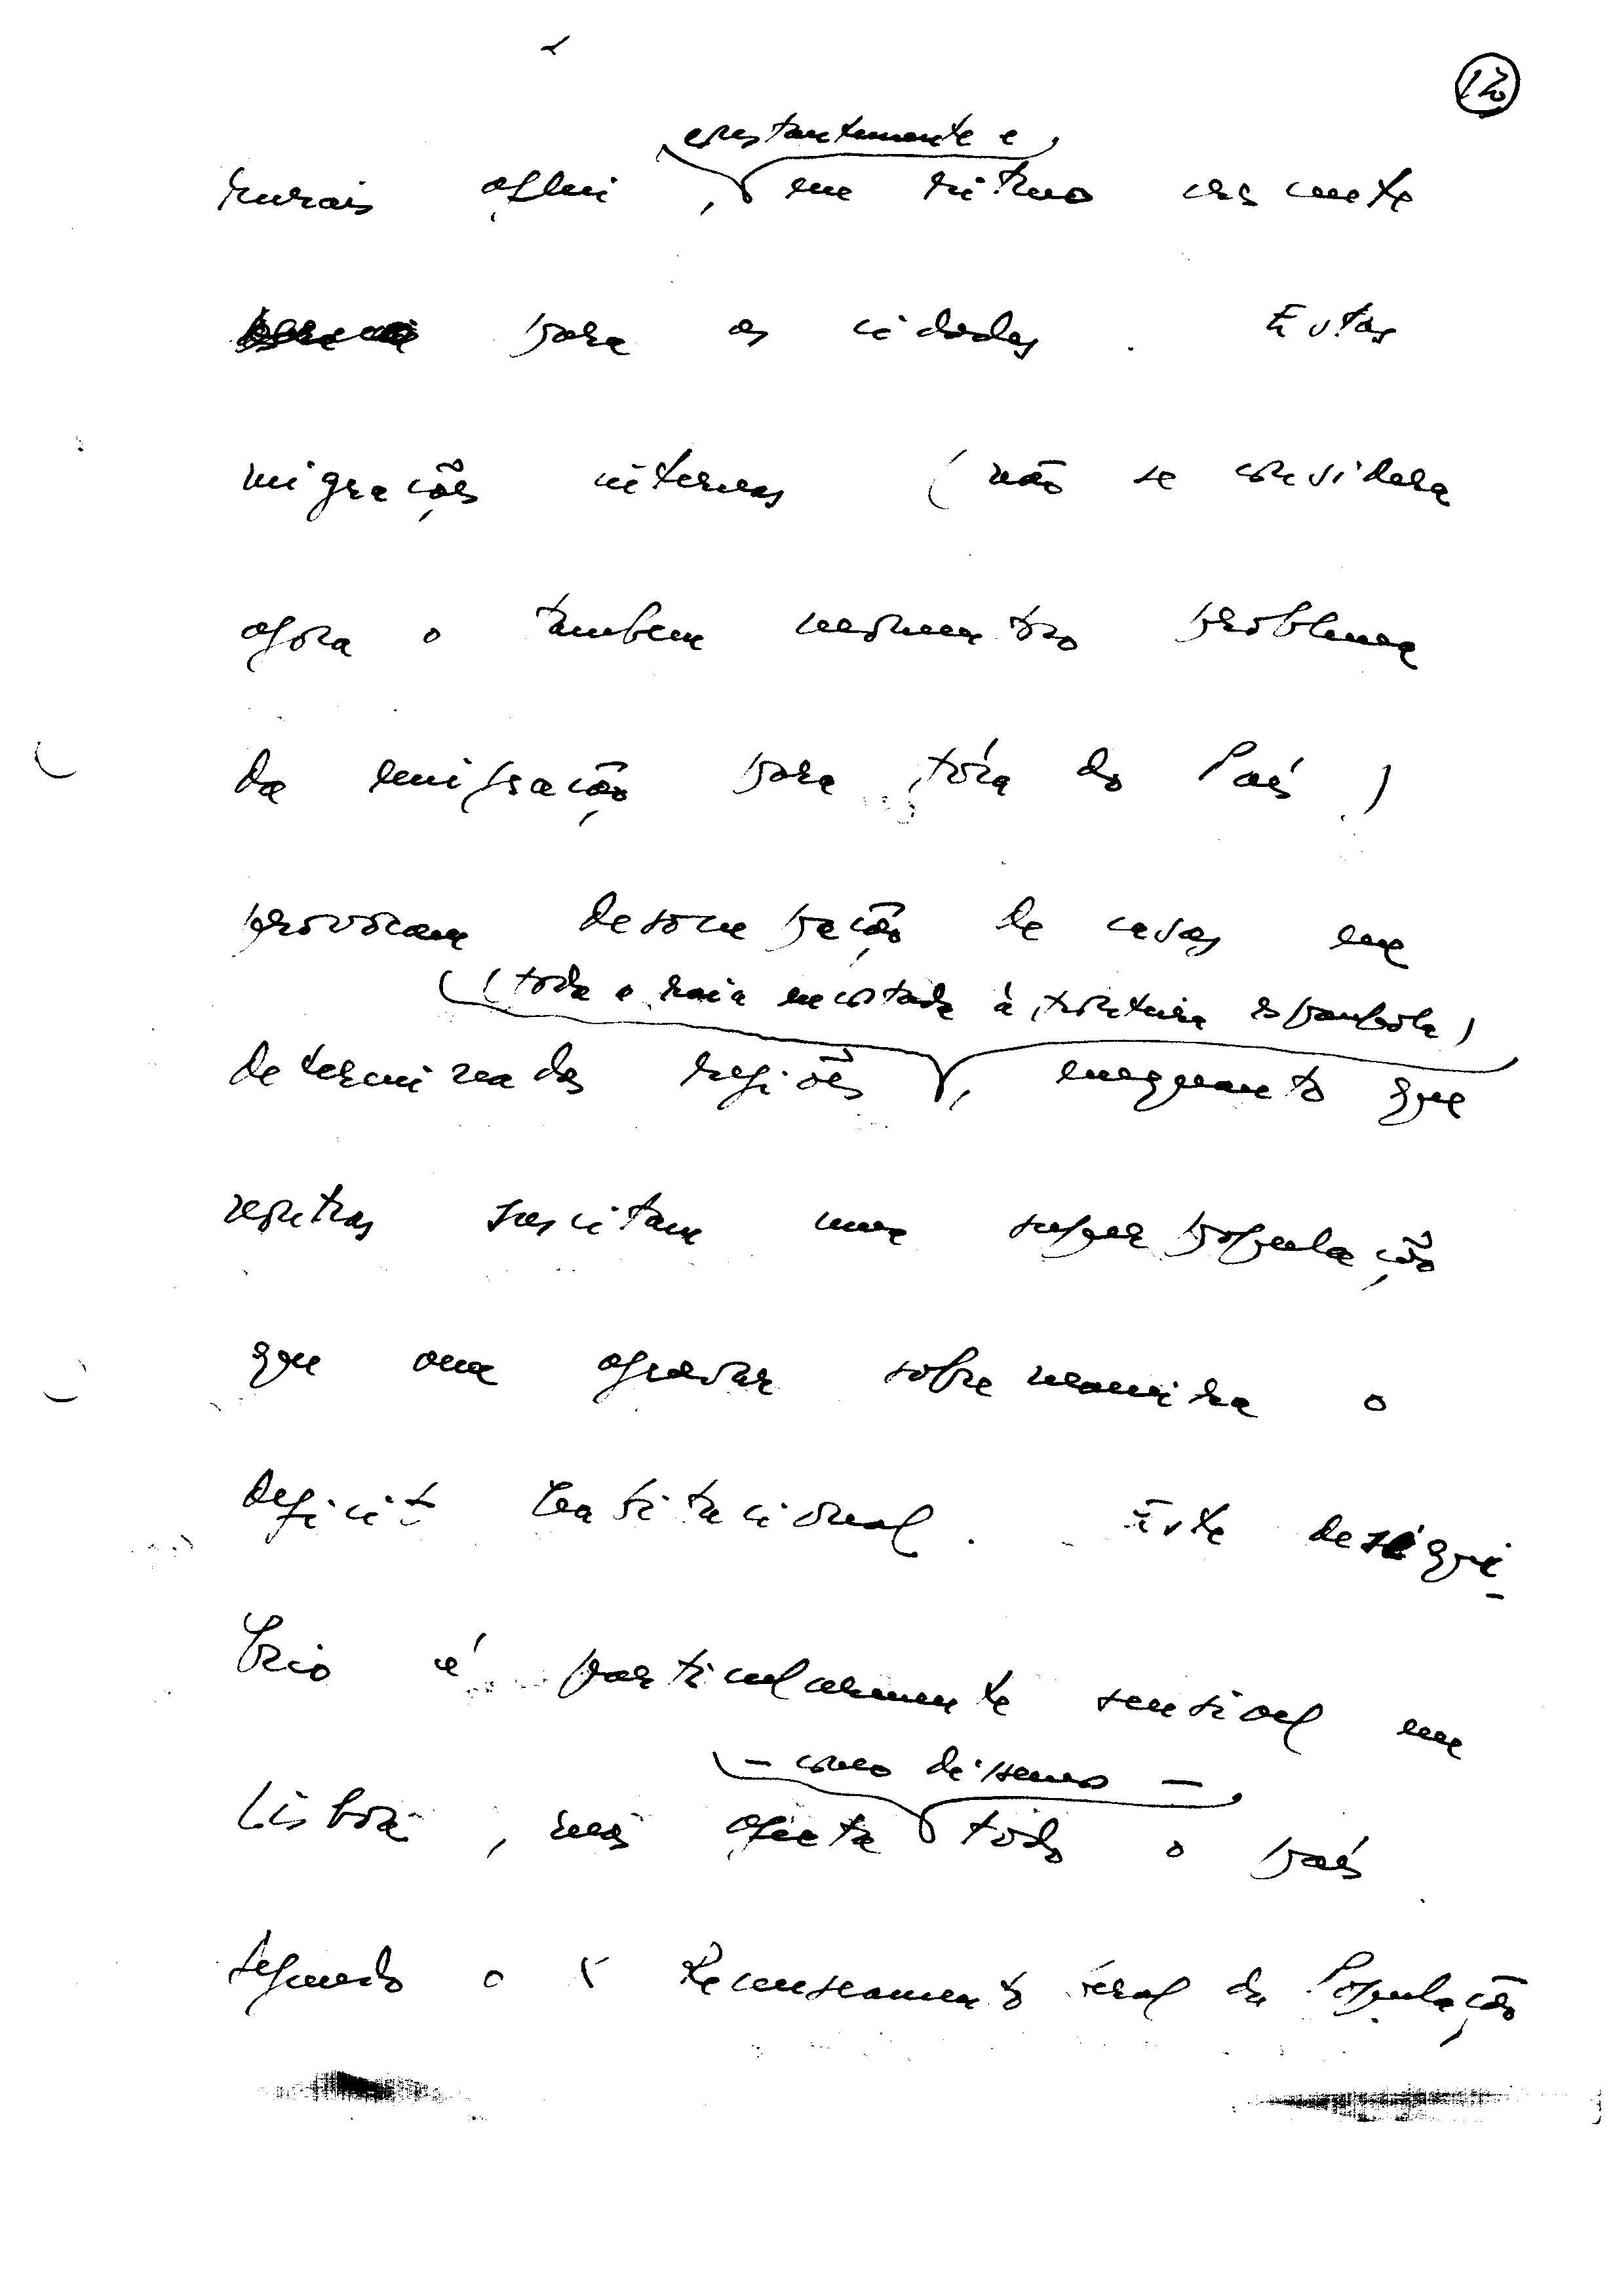 12
constantemente e
rurais aflui, em ritmo crescente
para as cidades. Estas
migrações internas (não se considera
agora o tambem monstruoso problema
da emigração para fóra do País)
provocam desocupação de casas em
(toda a raia encostada à fronteira espanhola)
determinadas regiões, enquanto que
noutras suscitam uma superpopulação
que vem agravar sobremaneira o
deficit habitacional. Este desiqui-
brio é particularmente sensivel em
— como dissemos —
Lisboa, mas afecta todo o país
Segundo o X Recenseamento Geral da População